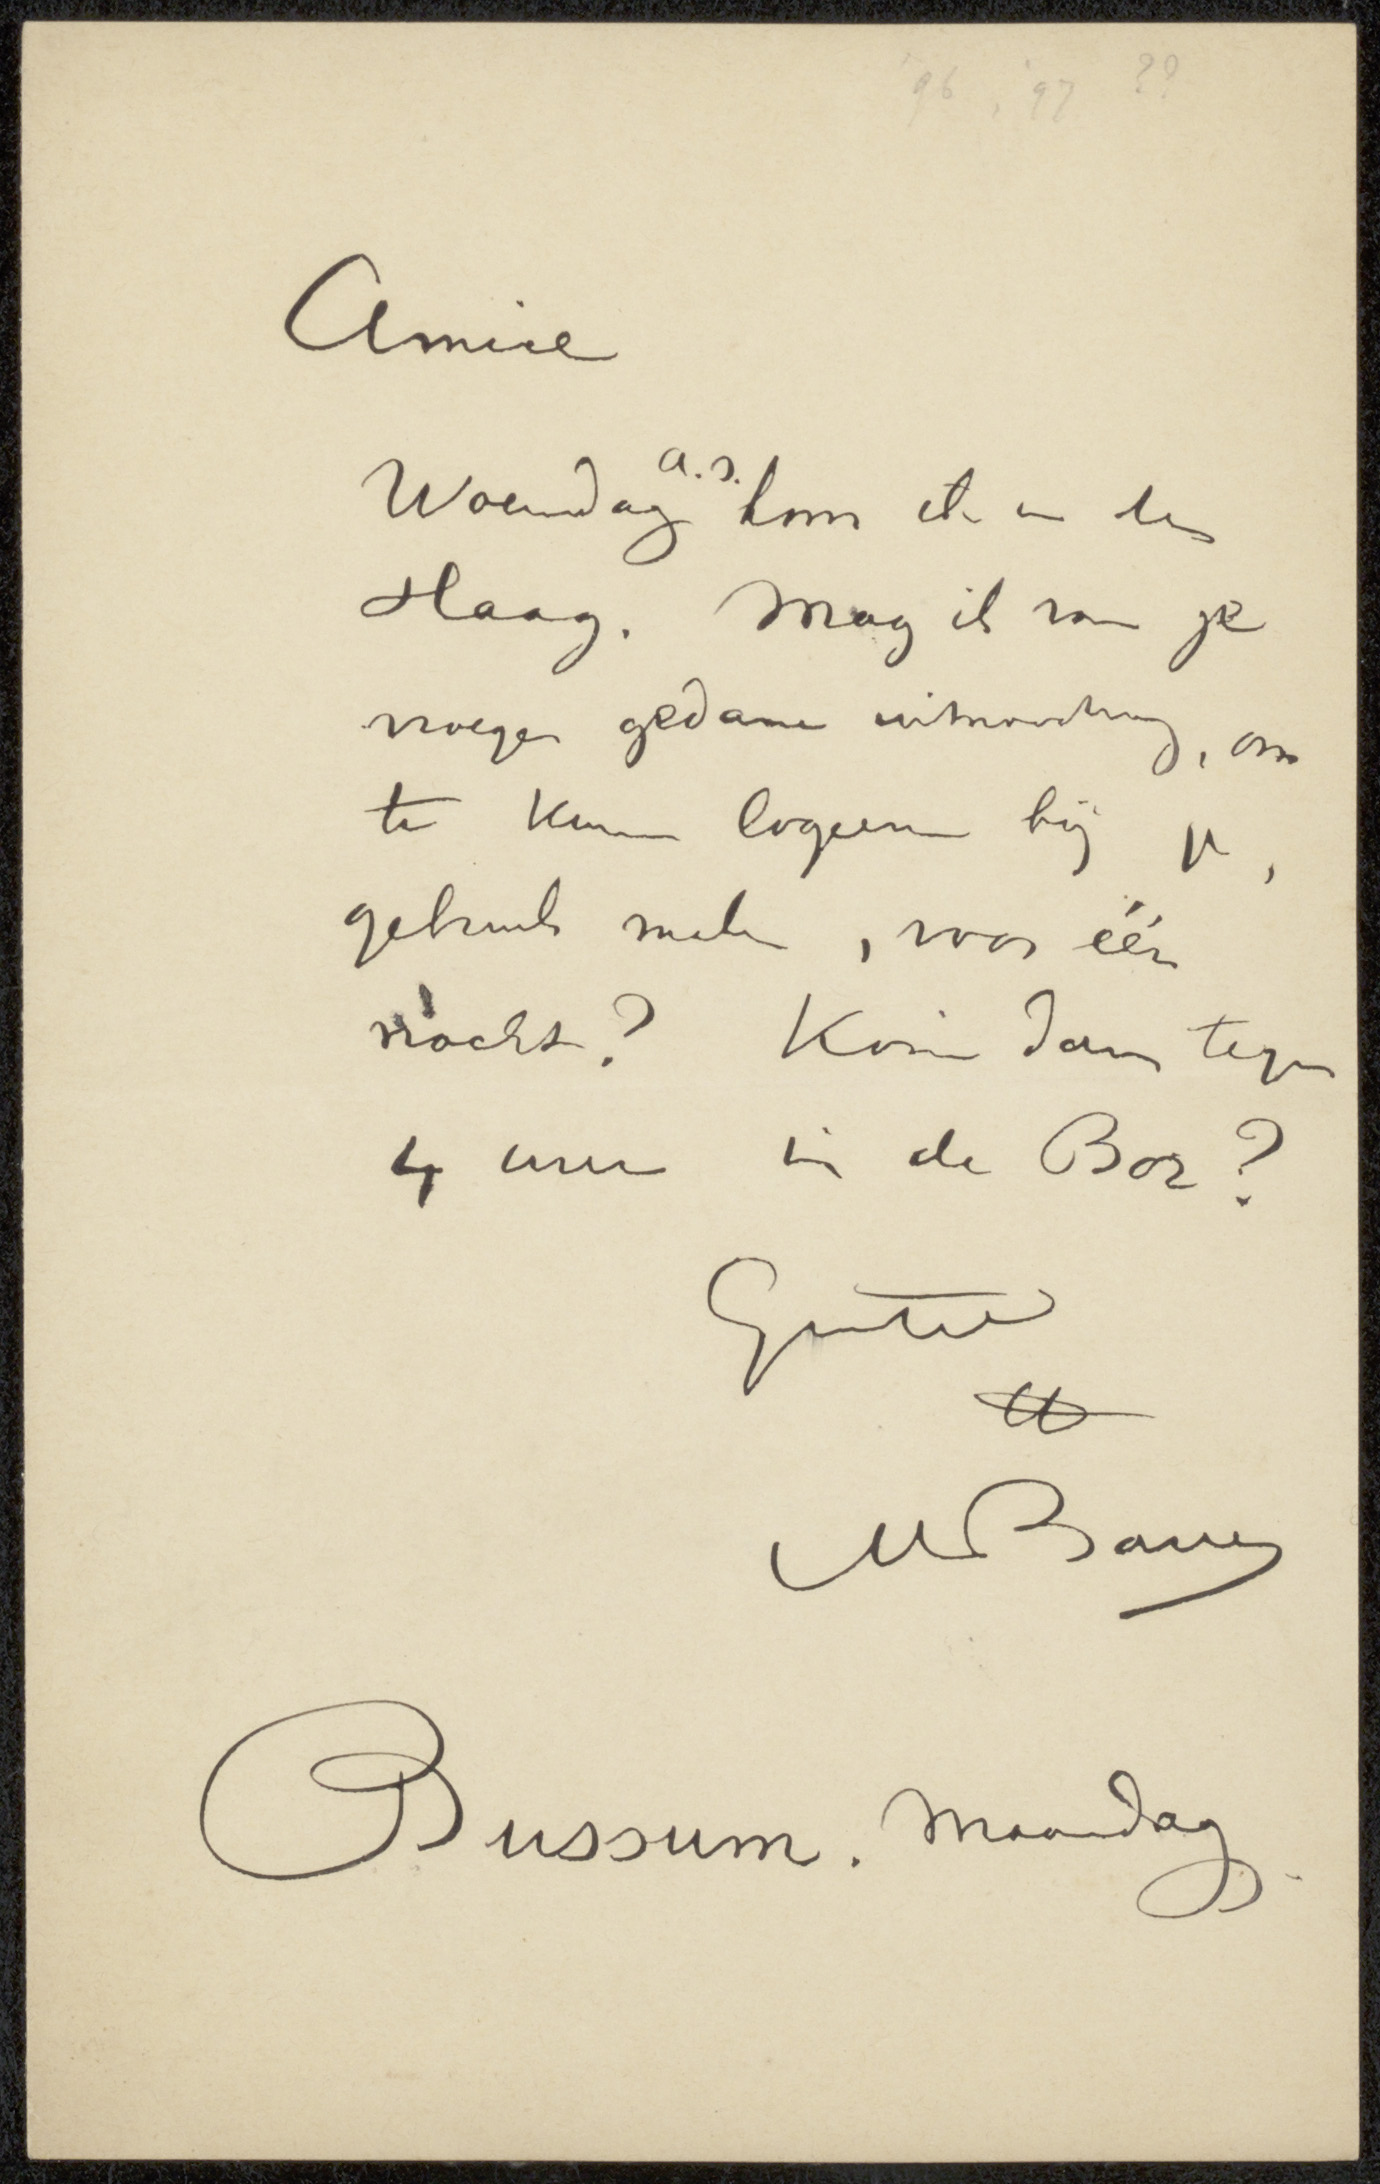 '96, '97 ??
Amice
Woensdag a.s. kom ik in den
Haag. Mag ik van je
vroeger gedane uitnoodiging, om
te kunnen logeeren bij je,
gebruik maken, voor één
nacht? Kom dan tegen
4 uur in de Bos?
Groete
tt
MBauer
Bussum. Maandag.